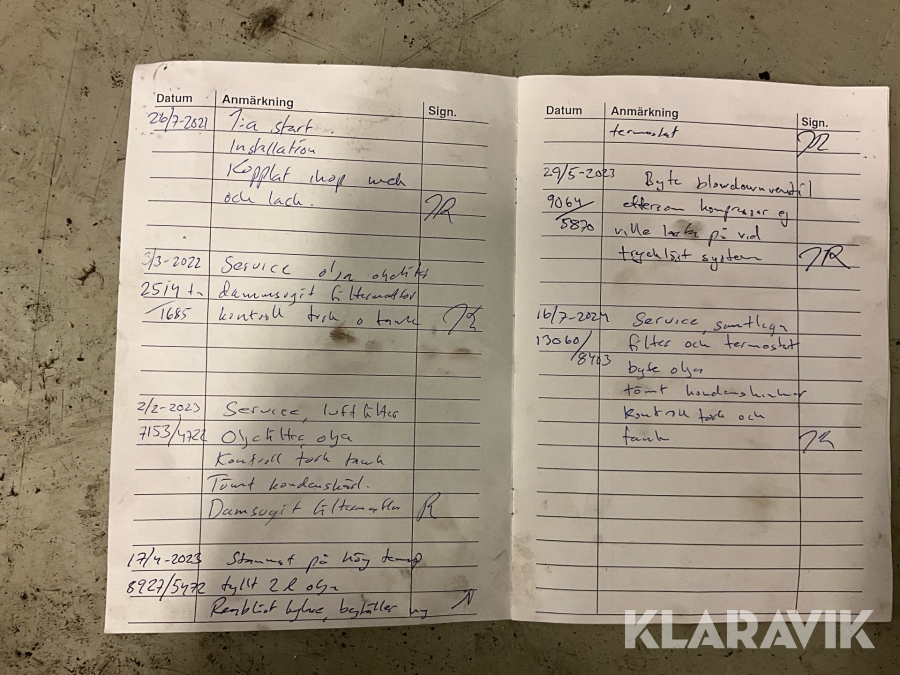 Datum Anmärkning Sign.
26/7-2021 1:a start.
Installation
Kopplat ihop mek
och lack. JR
3/3-2022 Service olja oljefilter
2514 tn dammsugit filtermattor
/1685 kontroll tork o tank JR
2/2-2023 Service, luftfilter
7153/4722 Oljefilter, olja
Kontroll tork tank
Tömt kondenskärl.
Damsugit filtermattor R
17/4-2023 Stannat på hög temp
8927/5472 fyllt 2 l olja
Renblåst kylare, beställer ny
Datum Anmärkning Sign.
termostat JR
29/5-2023 Byte blowdownventil
9064/ eftersom kompressor ej
5870 ville lasta på vid
trycklöst system JR
16/7-2024 Service, samtliga
13060/ filter och termostat
8403 byte olja
tömt kondenskärl
Kontroll tork och
tank JR
KLARAVIK